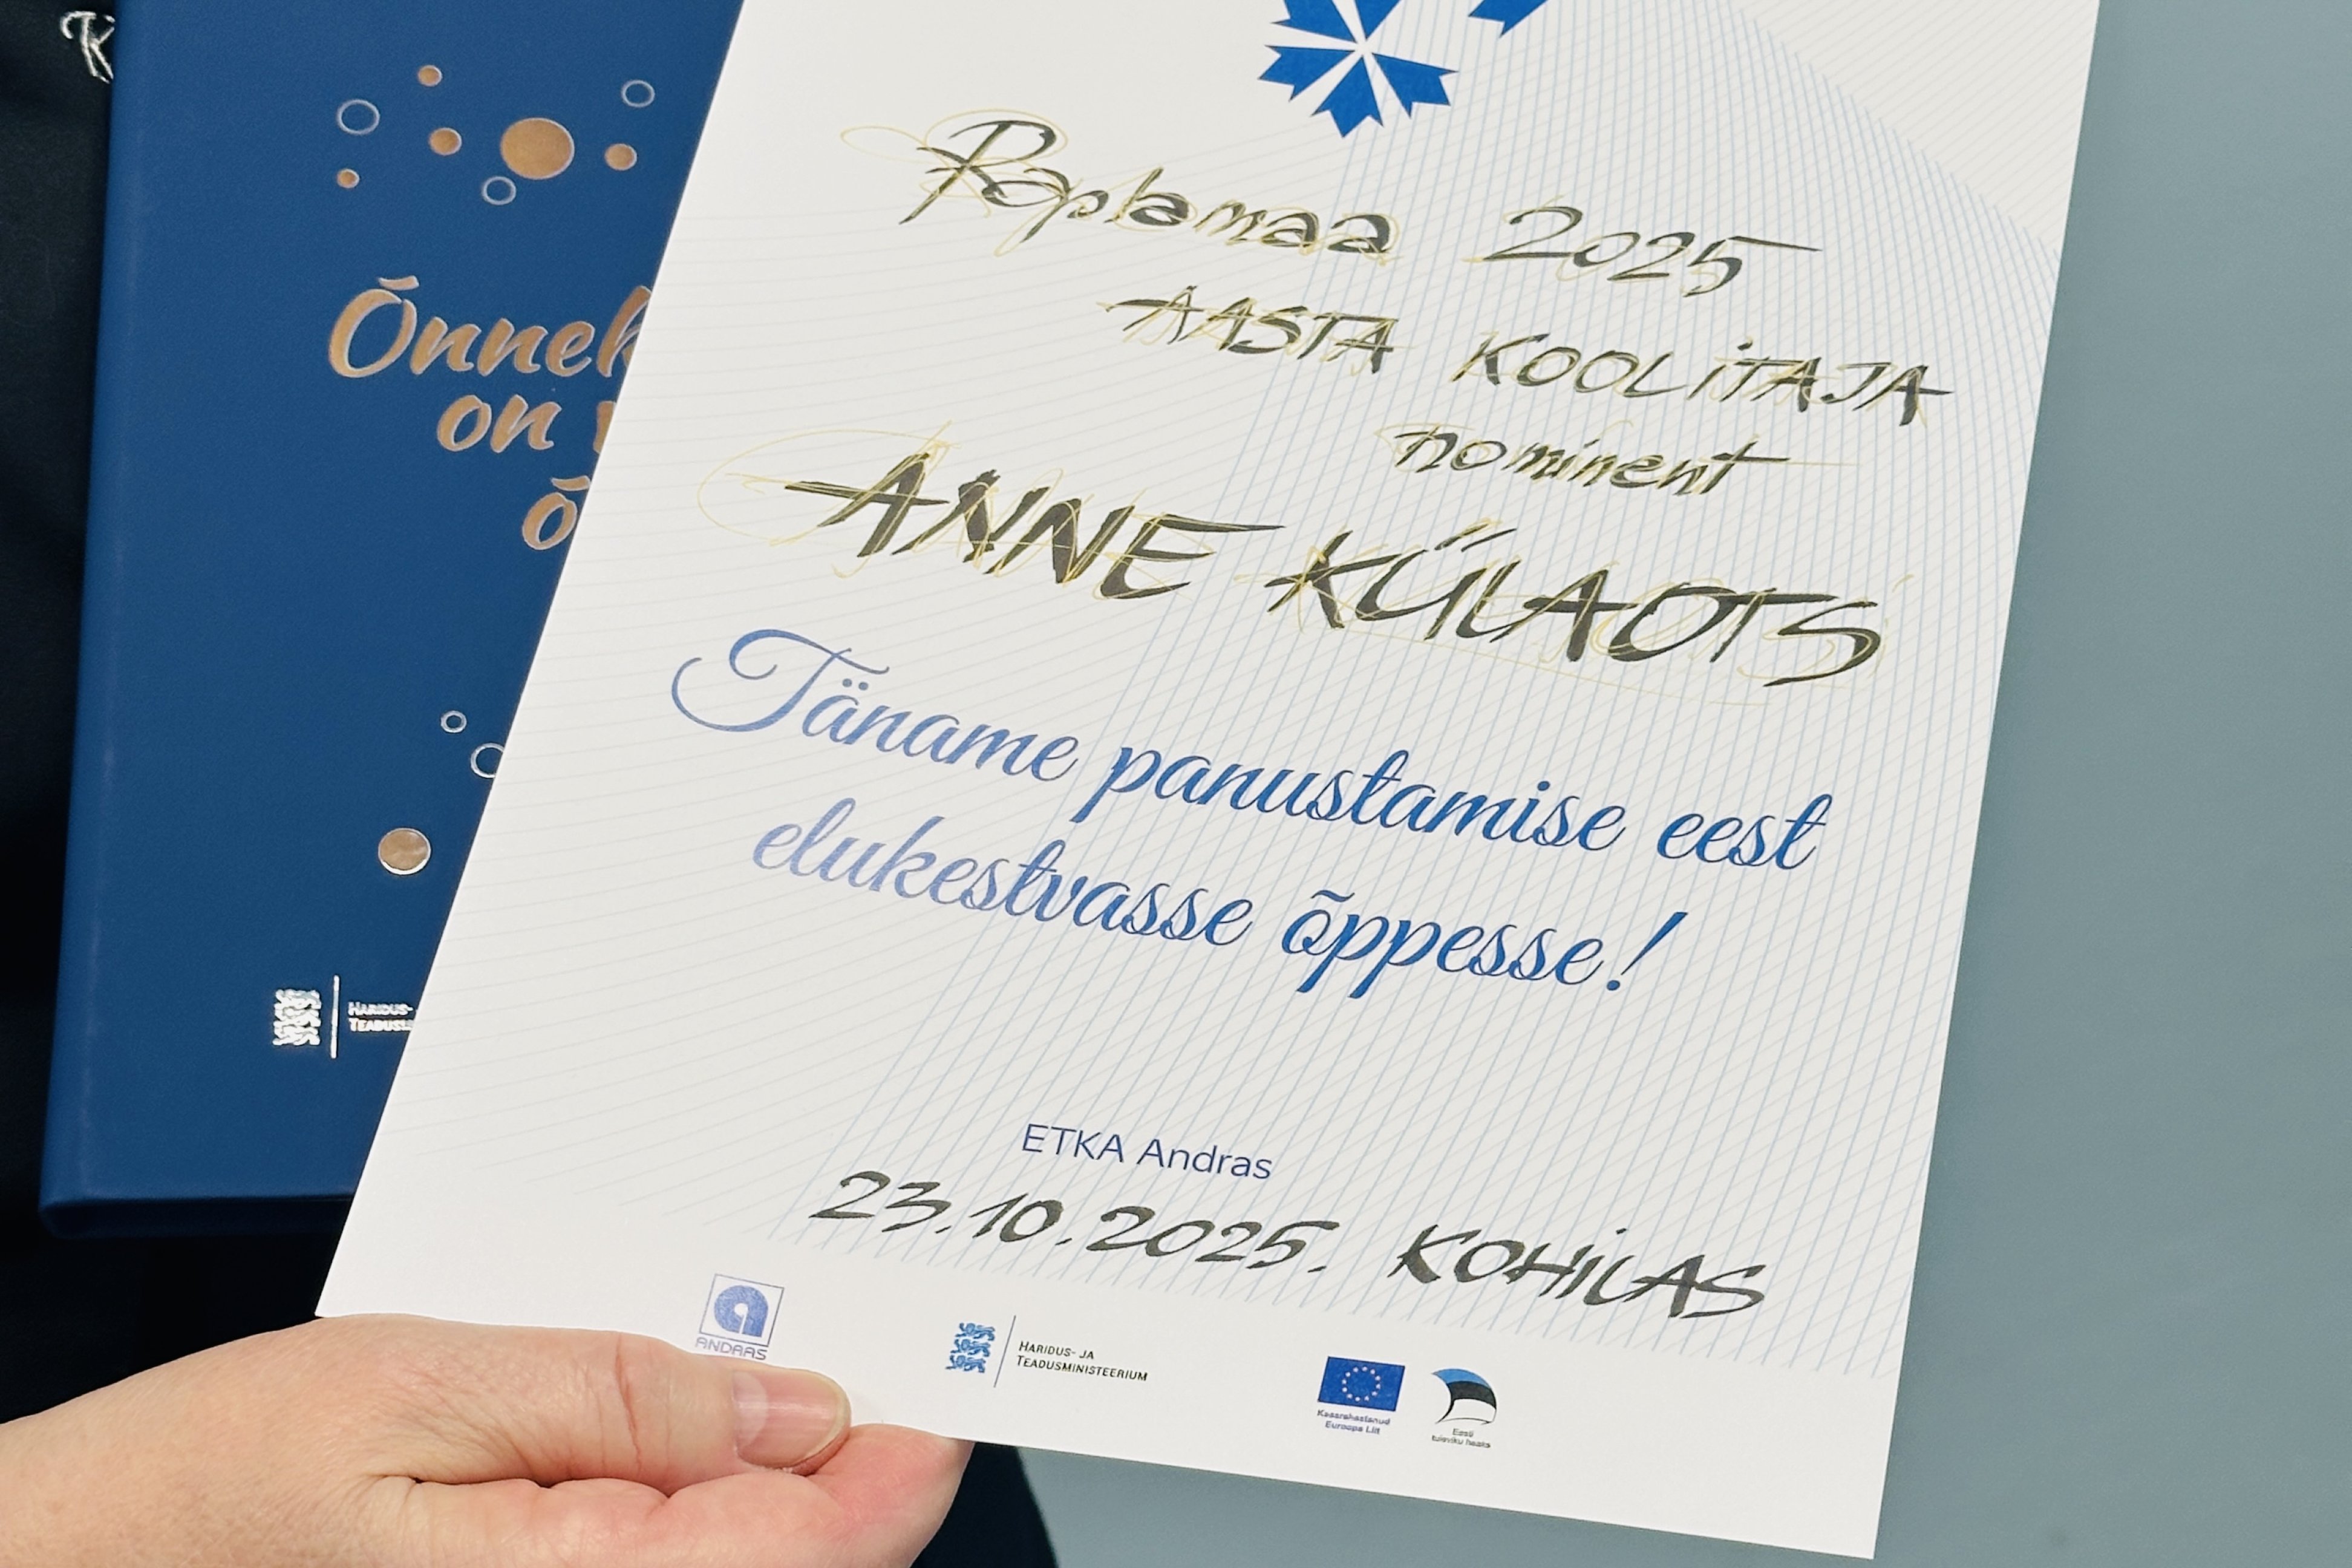 Õnnek
on
õ
HARIDUS-
Raplamaa 2025
AASTA KOOLITAJA
nominent
ANNE KÜLAOTS
Täname panustamise eest
elukestvasse õppesse!
ETKA Andras
23.10.2025. KOHILAS
ANDRAS
HARIDUS- JA
TEADUSMINISTEERIUM
Kaasrahastanud
Euroopa Liit
Eesti
tuleviku heaks